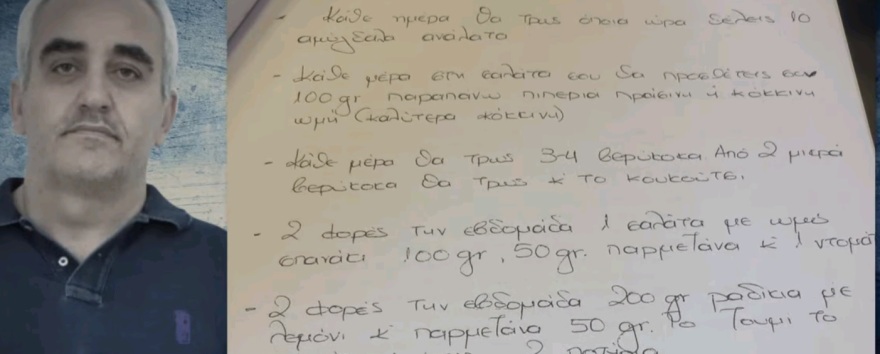 - Κάθε ημέρα θα τρως όποια ώρα θέλεις 10
αμύγδαλα ανάλατα
- Κάθε μέρα στη σαλάτα σου θα προσθέτεις
100gr παραπάνω πιπεριά πράσινη ή κόκκινη
ωμή (καλύτερα κόκκινη)
- Κάθε μέρα θα τρως 3-4 βερύκοκα. Από 2 μικρά
βερύκοκα θα τρως κ το κουκούτσι.
- 2 φορές την εβδομάδα 1 σαλάτα με ωμό
σπανάκι 100gr, 50gr. παρμεζάνα κ 1 ντομά
- 2 φορές την εβδομάδα 200gr ραδίκια με
λεμόνι κ παρμεζάνα 50gr. Το ζουμί το
2